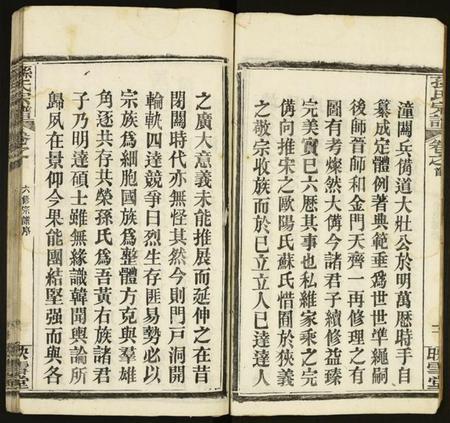 孫氏宗譜
卷之首
三
映雪堂
潼關兵備道大壯公於明萬厯時手自
纂成定體例著典範垂爲世世準繩嗣
後師晉師和金門天齊一再修理之有
圖有考燦然大備今諸君子續修益臻
完美實巳六厯其事也私維家乘之完
備向推宋之歐陽氏蘇氏惜囿於狹義
之敬宗收族而於巳立立人巳達達人
之廣大意義未能推展而延伸之在昔
閉關時代亦無怪其然今則門戸洞開
輪軌四達競爭日烈生存匪易勢必以
宗族爲細胞國族爲整體方克與羣雄
角逐共存共榮孫氏爲吾黃右族諸君
子乃明達碩士雖無緣識韓聞輿論所
歸夙在景仰今果能團結堅强而與各
孫氏宗譜
卷之首
六修宗譜序
映雪堂